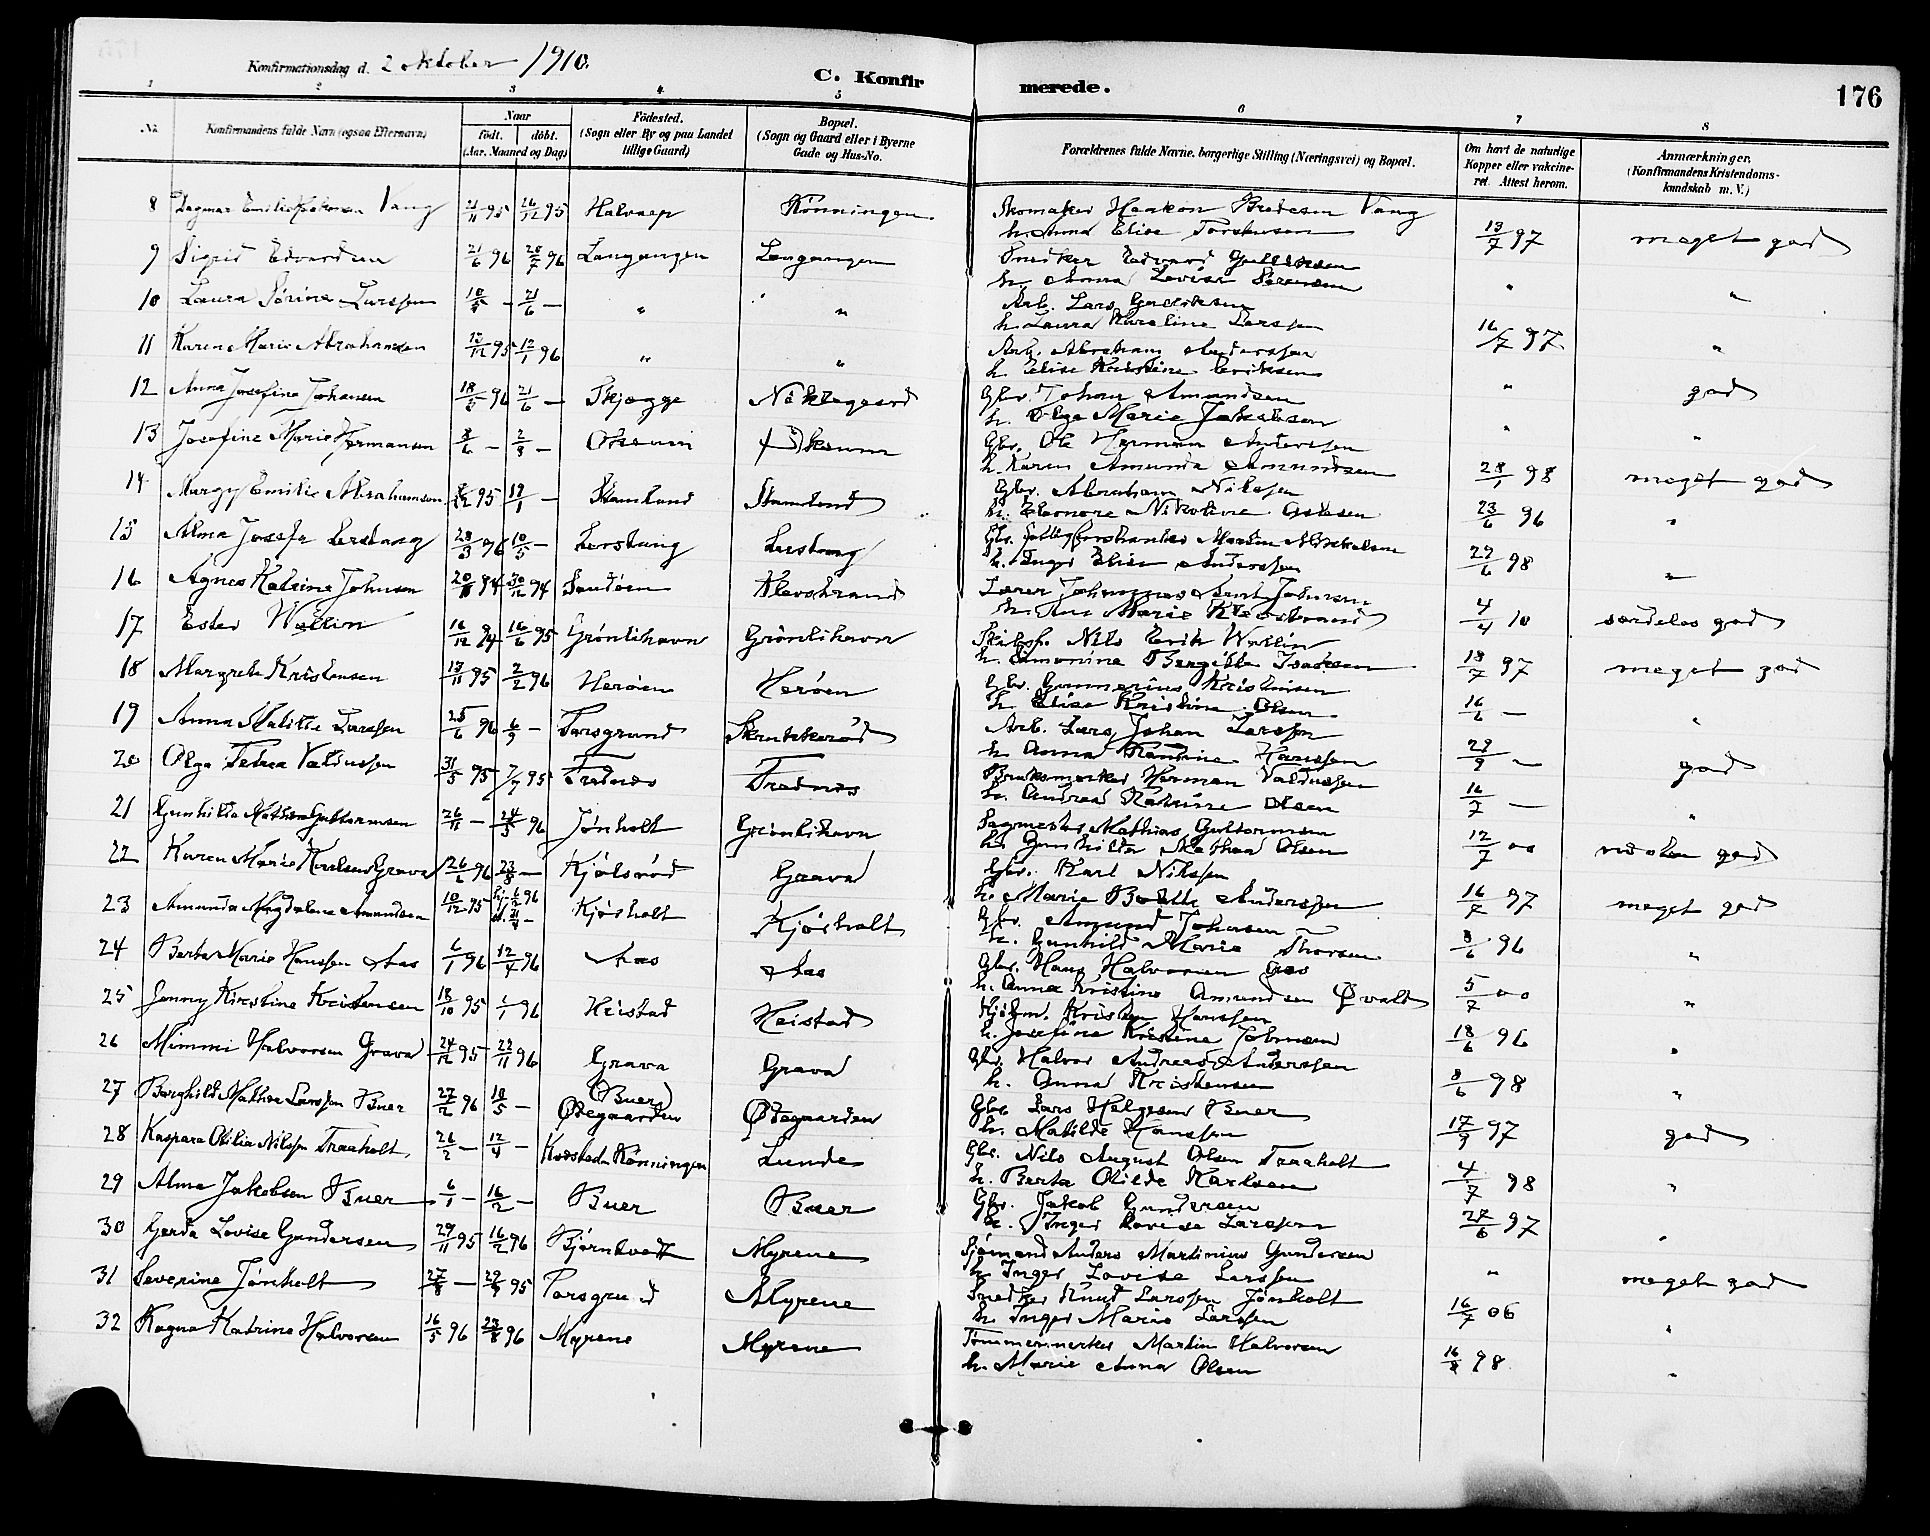 Konfirmationsdag d. 2 oktober 1910.
C. Konfirmerede.
176
1 2 3 4 5 6 7 8
No.
Konfirmandens fulde Navn (ogsaa Efternavn)
Naar
født. døbt.
(Aar, Maaned og Dag)
Fødested.
(Sogn eller By og paa Landet
tillige Gaard)
Bopæl.
(Sogn og Gaard eller i Byerne
Gade og Hus-No.
Forældrenes fulde Navne, borgerlige Stilling (Næringsvei) og Bopæl.
Om havt de naturlige
Kopper eller vakcine-
ret. Attest herom.
Anmærkninger.
(Konfirmandens Kristendoms-
kundskab m. V.)
8 Dagmar Emilie Haakonsen Vang 21/11 95 26/12 95 Rønningen Skomaker Haakon Bredesen Vang
h. Anna Elise 13/7 97 meget god
9 Sigrid Edvardsen 21/6 96 26/7 96 Langangen Langangen Snedker Edvard
h. Anna Lovise Sørensen " "
10 Laura Sørine Larssen 21/6 — " " Arb. Lars
h. Laura Karoline Larssen 16/7 97 "
11 Karen Marie Abrahamsen 12/1 96 " " Arb. Abraham Anderssen
h. Elise Kristine Eriksen " god
12 Anna Josefine Johansen 96 21/6 — Skjegge Nøklegaard Gbr. Johan Amundsen
h. Olga Marie Jakobsen " "
13 Josefine Marie Hermansen 8/6 — Gbr. Ole Herman Anderssen
h. Karen Amunda Amundsen 28/1 98 meget god
14 Margy Emilie Abrahamsen 95 19/1 — Stamland Stamland Gbr. Abraham Nilssen
h. Eleonore Nikoline 23/6 96 "
15 Alma Josefa Lerstang 28/3 96 10/5 — Lerstang Lerstang
h. Inger Elise Anderssen 29/6 98 "
16 Agnes Katrine Johnsen 20/11 94 30/12 94 Sandøen Klevstrand Lærer
h. Ane Marie Klevstrand 4/4 10 særdeles god
17 Ester Wallin 16/12 94 16/6 95 Grønlihavn Grønlihavn Skibsf. Nils Erik Wallin
h. Simonine Bergitte Isaksen 18/7 97 meget god
18 Margrete Kristensen 13/11 95 2/2 96 Herøen Herøen Gbr. Gunnerius Kristensen
h. Elise Kristine Olsen 16/6 — "
19 Anna Malitte Larssen 25/6 96 6/9 — Porsgrund Skrukkerød Arb. Lars Johan Larssen
h. Anna Hanssen 29/9 — god
20 Olga Valdussen 31/5 95 7/7 95 Trednes Trednes Herman Valdussen
h. Andrea Katrine Olsen 16/7 — "
21 Gunhilda Mathea Guttormsen 26/11 — 24/5 96 Jønholt Grønlihavn Sagmester Mathias Guttormsen
h. Gunhilda Mathea Olsen 12/7 00 god
22 Karen Marie Karlsen Grava 26/6 96 23/8 — Kjølsrød Grava Gbr. Karl Nilssen
h. Marie Bodille Anderssen 16/7 97 meget god
23 Amunda Magdalene Amundsen 10/12 95 Kjøsholt Kjøsholt Gbr. Amund Johansen
h. Gunhild Marie Thorsen 8/6 96 "
24 Berta Marie Hanssen Aas 6/1 96 12/4 96 Aas Aas Gbr. Hans Halvorsen Aas
h. Anna Kristine Amundsen Øvald 5/7 00 "
25 Jenny Kirstine Kristensen 18/10 95 1/1 96 Heistad Heistad Kristen Hanssen
h. Josefine Kristine 18/6 96 "
26 Mimmi Halvorsen Grava 24/12 95 22/11 96 Grava Grava Gbr. Halvor Andreas Anderssen
h. Anna Kristensen 8/6 98 "
27 Borghild Mathea Larssen Buer 27/2 96 10/5 — (Buer)
Ødegaarden Ødegaarden Gbr. Lars Helgesen Buer
h. Matilde Hanssen 17/9 97 god
28 Kaspara Otilia Nilssen Traaholt 26/2 — 12/4 — Rønningen Lunde Gbr. Nils August Olsen Traaholt
h. Berta Otilde Karlsen 4/7 98 "
29 Alma Jakobsen Buer 6/1 — 16/2 — Buer Buer Gbr. Jakob Gundersen
h. Inger Lovise Larssen 27/6 97 "
30 Gerda Lovise Gundersen 29/11 95 16/2 96 Bjørntvedt Myrene Sjømand Anders Martinius Gundersen
h. Inger Lovise Larssen " meget god
31 Severine Jønholt 27/8 — 29/9 95 Porsgrund Myrene Snedker Knud Larssen Jønholt
h. Inger Marie Larssen 16/7 06 "
32 Ragna Katrine Halvorsen 16/5 96 23/8 96 Myrene Myrene Tømmermerker Martin Halvorsen
h. Marie Anna Olsen 16/8 98 "